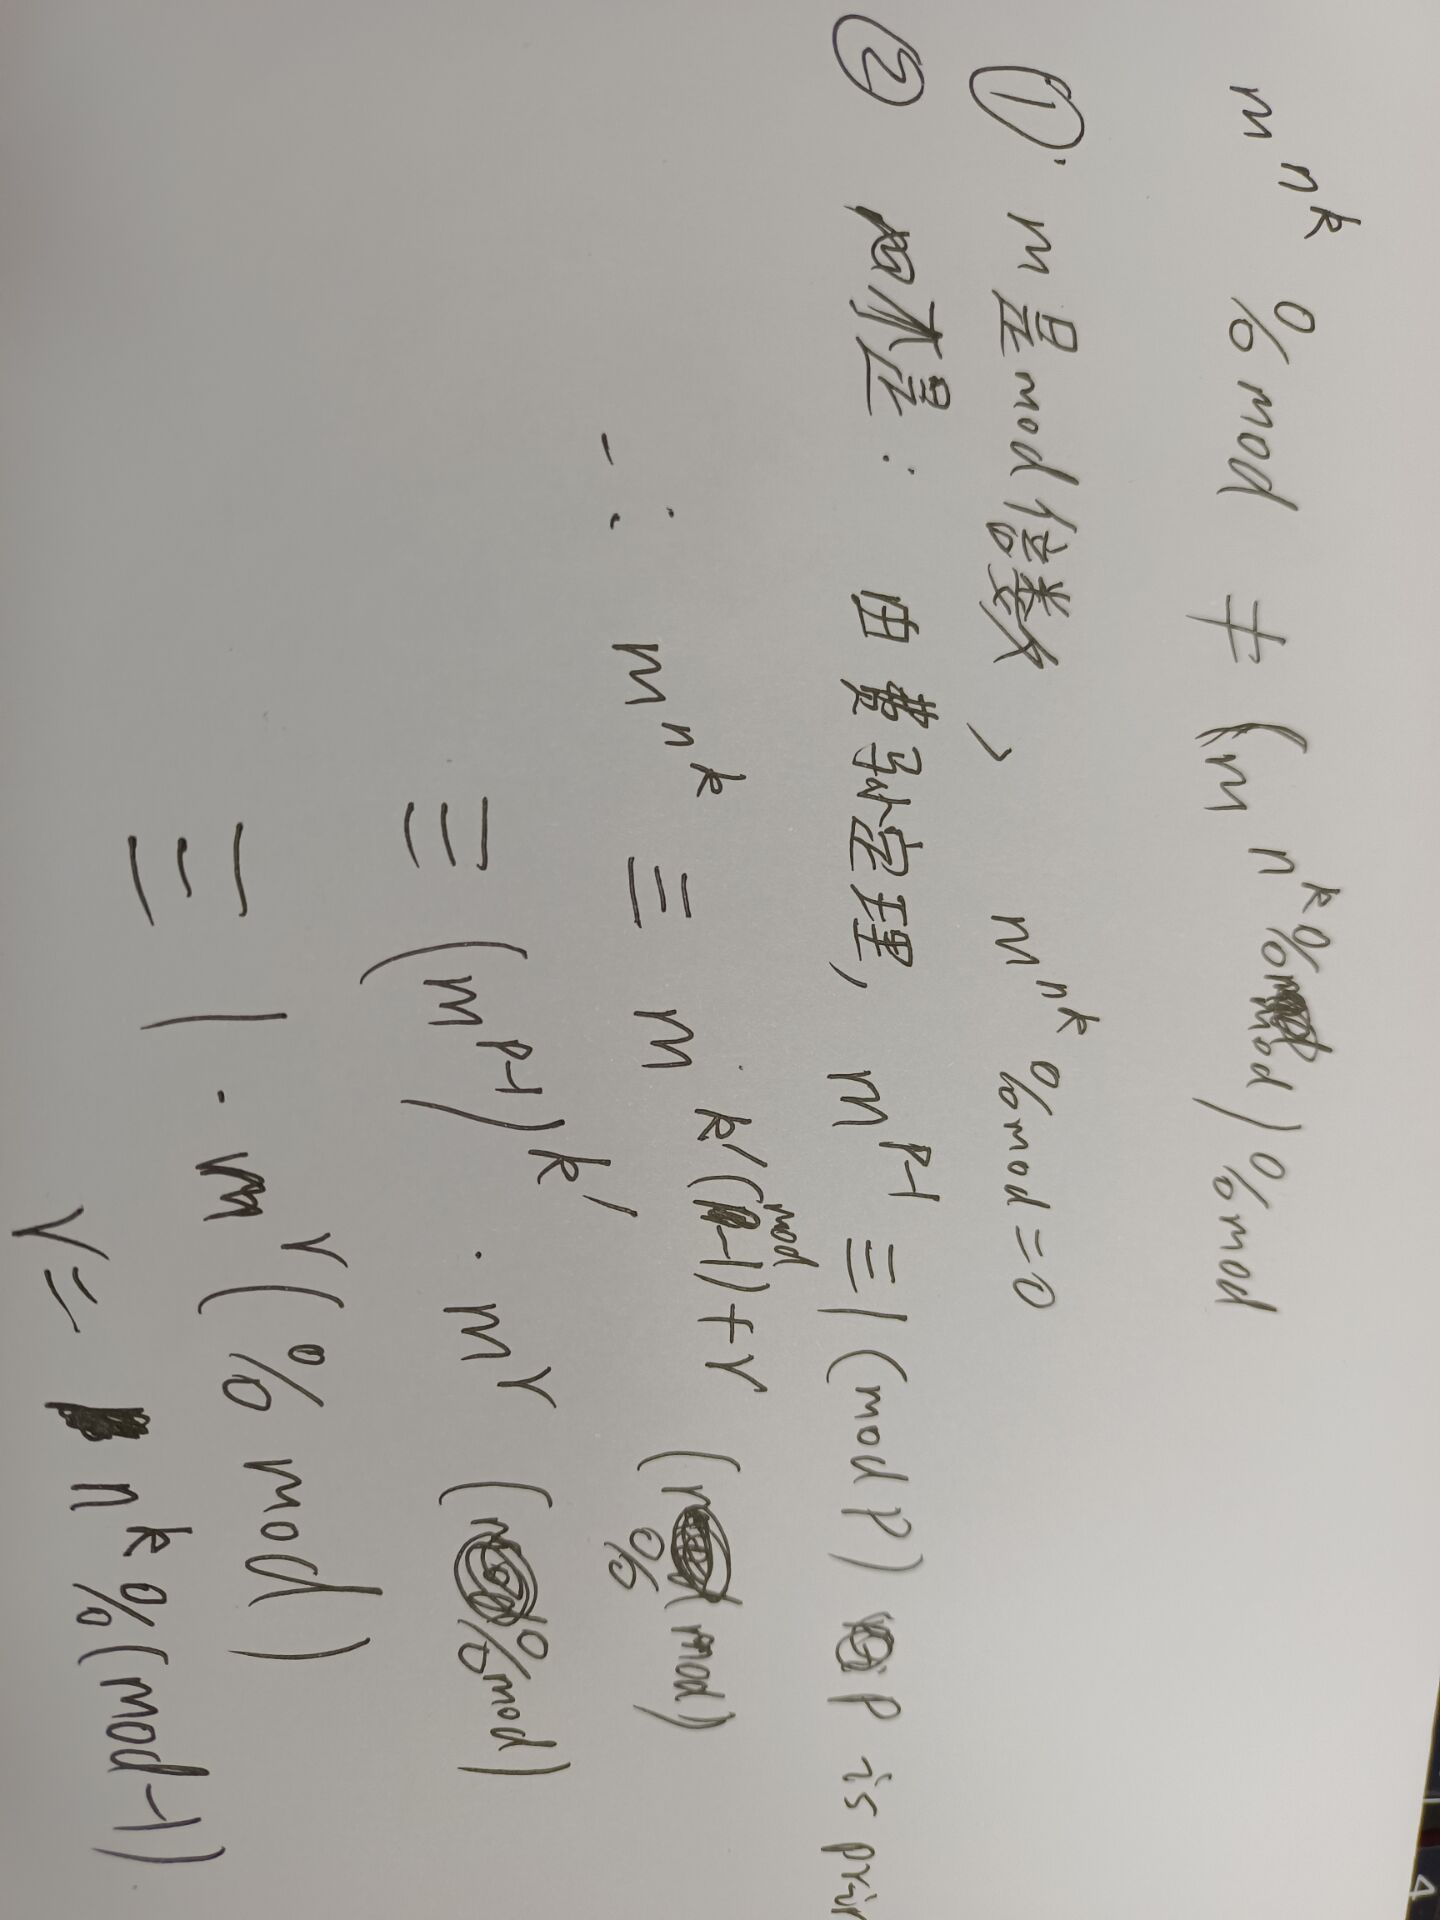 m^{n^k} % mod ≠ (m^{n^k % mod}) % mod
① m是mod倍数, m^{n^k} % mod = 0
② 不是: 由费马小定理, m^{p-1} ≡ 1 (mod p) p is
∴ m^{n^k} ≡ m^{k'(mod-1)+r} (% mod)
≡ (m^{p-1})^{k'} · m^r (% mod)
≡ 1 · m^r (% mod)
r = n^k % (mod-1)